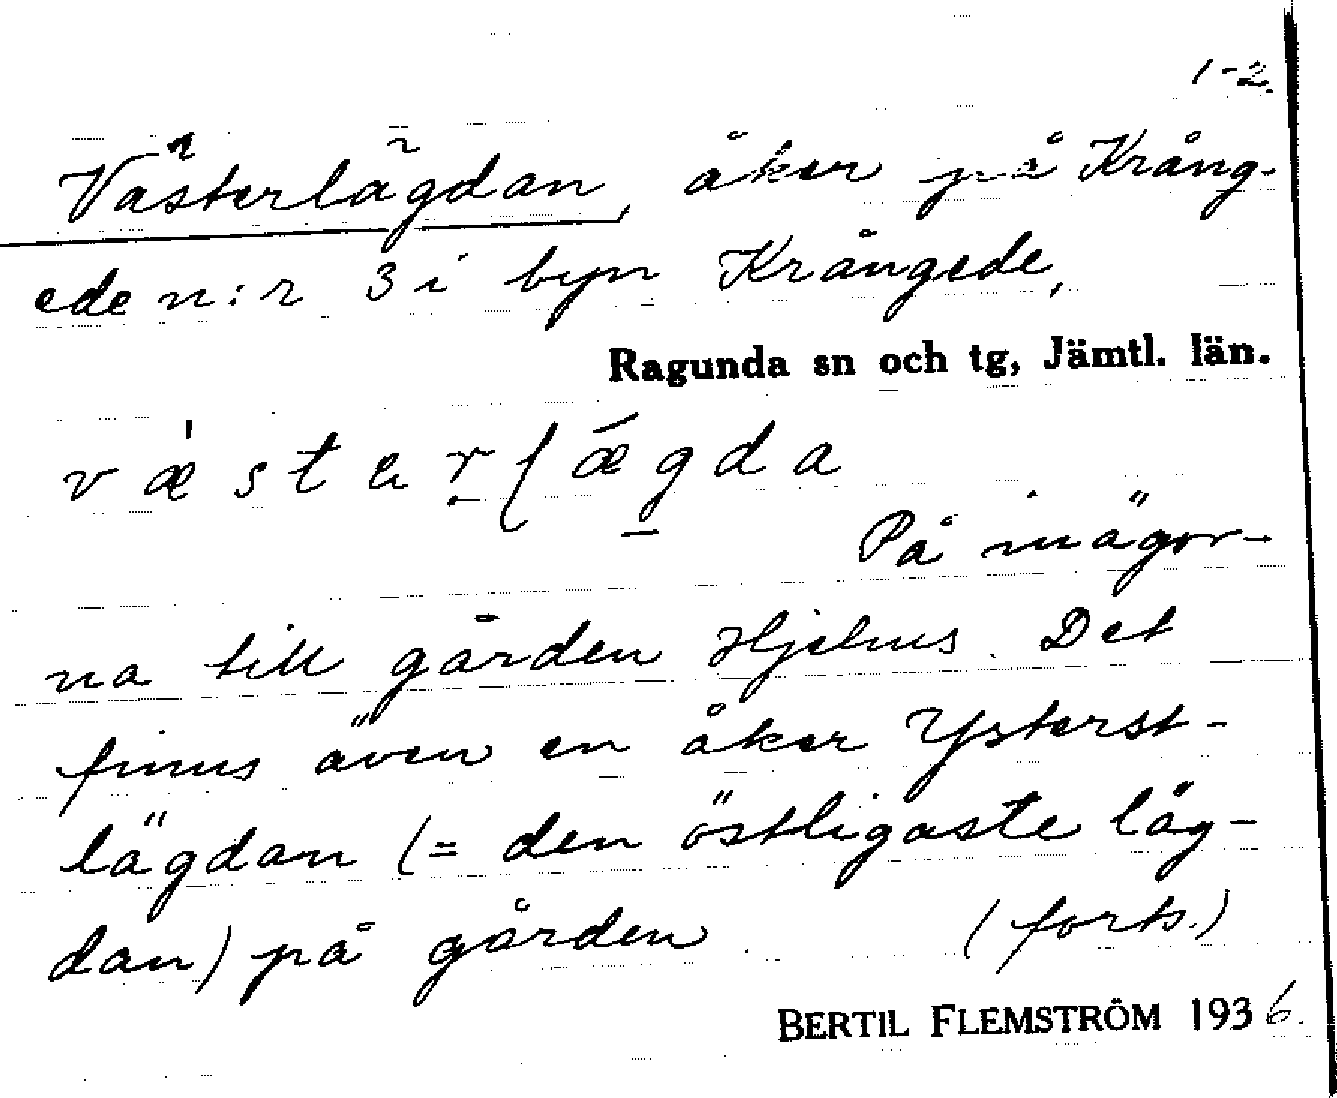 1-2.
Västerlägdan, åker på Krång-
ede n:r 3 i byn Krångede,
Ragunda sn och tg, Jämtl. län.
væ̀sterlǽgda
På mägor-
na till gården Hjelms. Det
finns även en åker Ysterst-
lägdan (= den östligaste läg-
dan) på gården. (forts.)
BERTIL FLEMSTRÖM 1936.